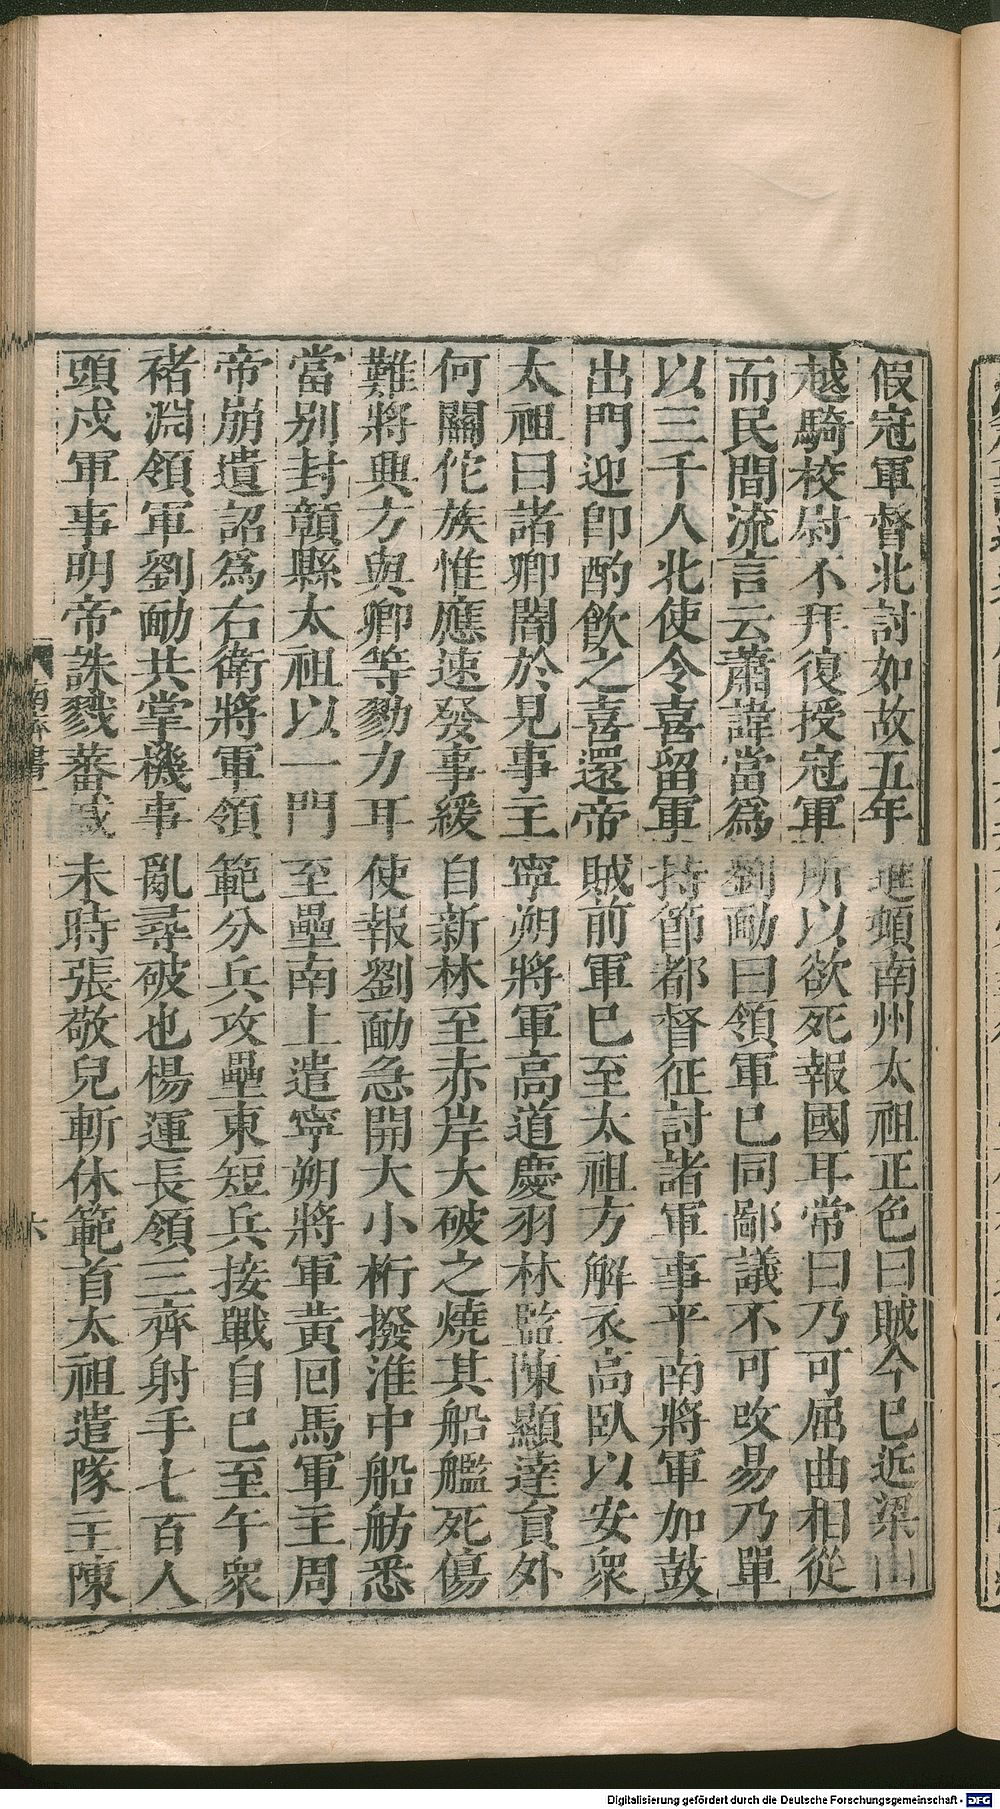 假冠軍督北討如故五年進頓南州太祖正色曰賊今已近梁山
越騎校尉不拜復授冠軍所以欲死報國耳常曰乃可屈曲相從
而民間流言云蕭諱當爲劉勔曰領軍已同鄙議不可改易乃單
以三千人北使令喜留軍持節都督征討諸軍事平南將軍加鼓
出門迎卽酌飮之喜還帝賊前軍已至太祖方解衣高臥以安衆
太祖曰諸卿闇於見事主寧朔將軍高道慶羽林監陳顯達員外
何關佗族惟應速發事緩自新林至赤岸大破之燒其船艦死傷
難將興方與卿等勠力耳使報劉勔急開大小桁撥淮中船舫悉
當别封贛縣太祖以一門至壘南上遣寧朔將軍黃回馬軍主周
帝崩遺詔爲右衛將軍領範分兵攻壘東短兵接戰自巳至午衆
褚淵領軍劉勔共掌機事亂尋破也楊運長領三齊射手七百人
頭戍軍事明帝誅戮蕃戚未時張敬兒斬休範首太祖遣隊主陳
南齊書一
六
Digitalisierung gefördert durch die Deutsche Forschungsgemeinschaft - DFG